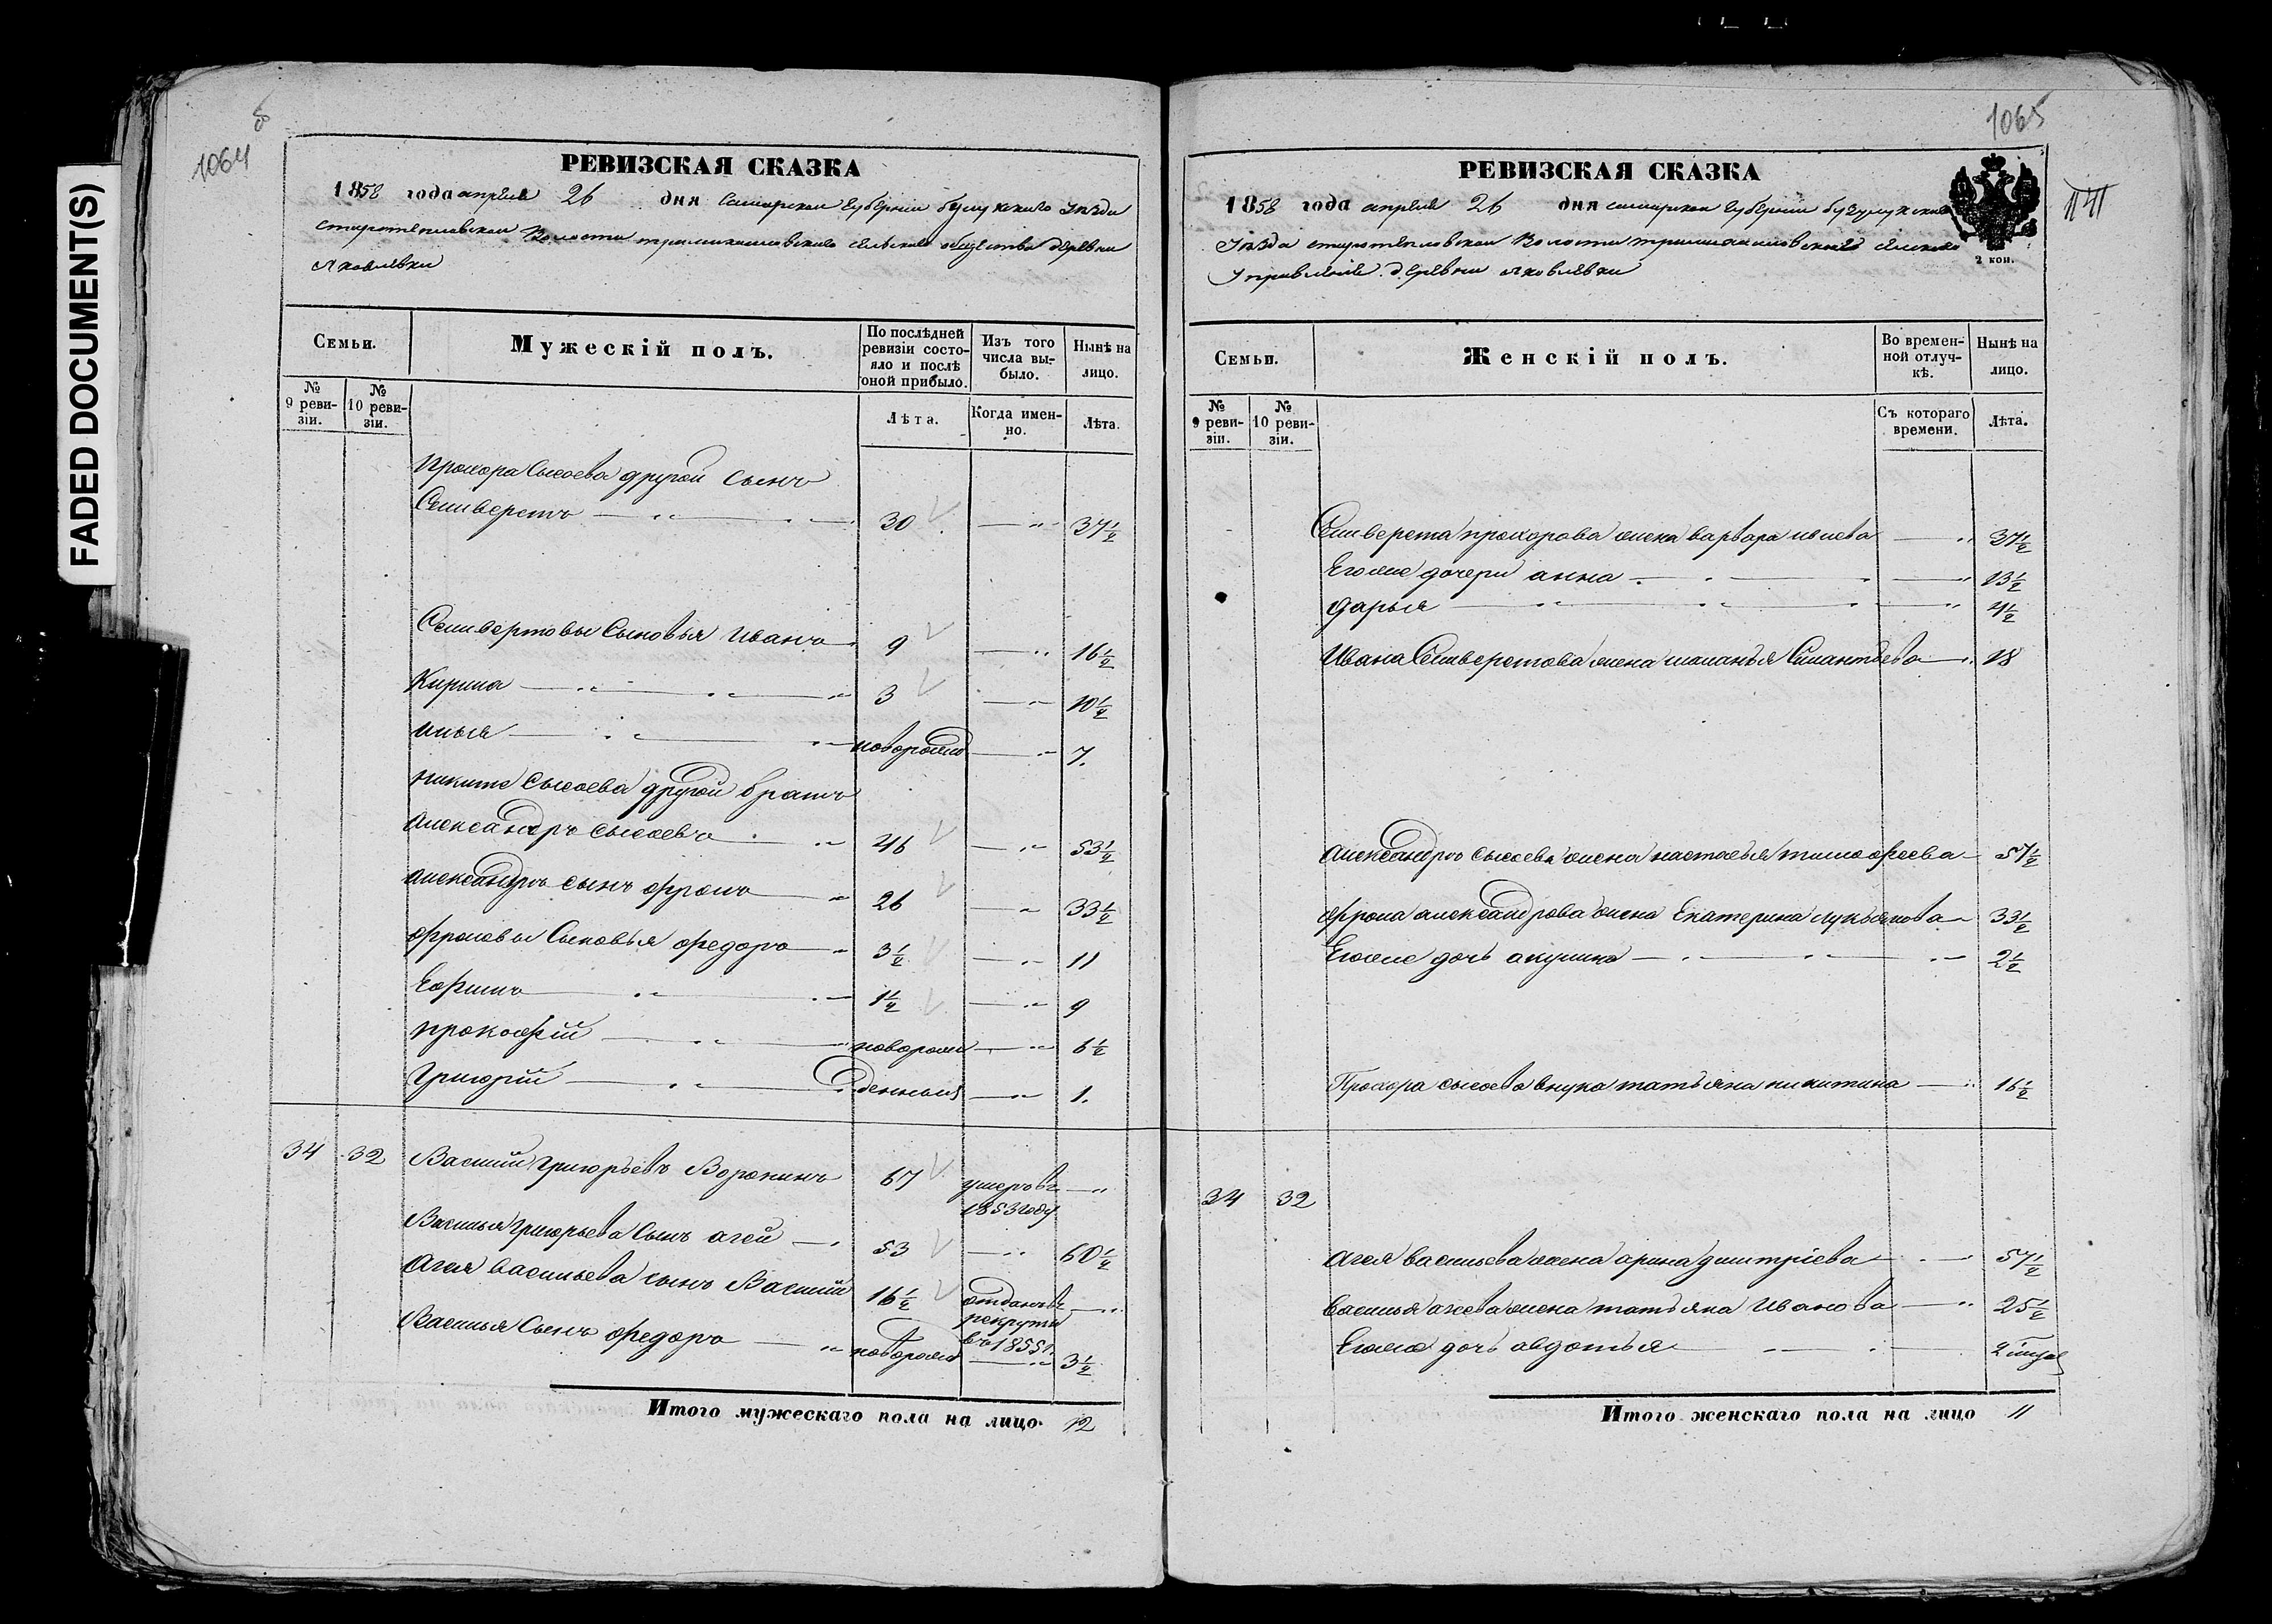 FADED DOCUMENT(S)
1064
РЕВИЗСКАЯ СКАЗКА
1858 года апреля 26 дня Самарской губернии бузулукского Уезда
старотепловской Волости сельского общества деревни
Яковлевки
Семьи.
Мужескій полъ.
По послѣдней ревизіи состояло и послѣ оной прибыло.
Изъ того числа выбыло.
Нынѣ на лицо.
№ 9 ревизіи.
№ 10 ревизіи.
Лѣта.
Когда именно.
Лѣта.
Прохора Сысоева другой Сынъ
Селиверстъ 30 37½
Селиверстовы Сыновья Иванъ 9 16½
Кирила 3 10½
Илья новорожд 7.
Никиты Сысоева другой братъ
Александръ Сысоевъ 46 53½
Александръ сынъ фролъ 26 33½
фроловы Сыновья федоръ 3½ 11
Ефимъ 1½ 9
Прокофій новорож 6½
Григорій денныя 1.
34 32 Василий Григорьевъ Воронинъ 67 умеръ въ 1853 году
Василья Григорьева Сынъ агей 53 60½
Агея Васильева сынъ Василий 16½ отданъ в рекруты въ 1855 г.
Василья Сынъ федоръ новорожд 3½
Итого мужескаго пола на лицо. 12
1065
141
РЕВИЗСКАЯ СКАЗКА
1858 года апреля 26 дня самарской губернии бузулукского
Уезда старотепловской Волости сельского
Управления деревни яковлевки
2 коп.
Семьи.
Женскій полъ.
Во временной отлучкѣ.
Нынѣ на лицо.
№ 9 ревизіи.
№ 10 ревизіи.
Съ котораго времени.
Лѣта.
Селиверста прохорова жена варвара 37½
Егоже дочери анна 13½
дарья 4½
Ивана Селиверстова жена маланья 18
Александра Сысоева жена настасья тимофеева 57½
фрола александрова жена Екатерина лукьянова 33½
Егоже дочь акулина 2½
Прохора сысоева внука татьяна никитина 16½
34 32
Агея васильева жена арина дмитріева 57½
Василья агева жена татьяна Иванова 25½
Егоже дочь авдотья
Итого женскаго пола на лицо 11